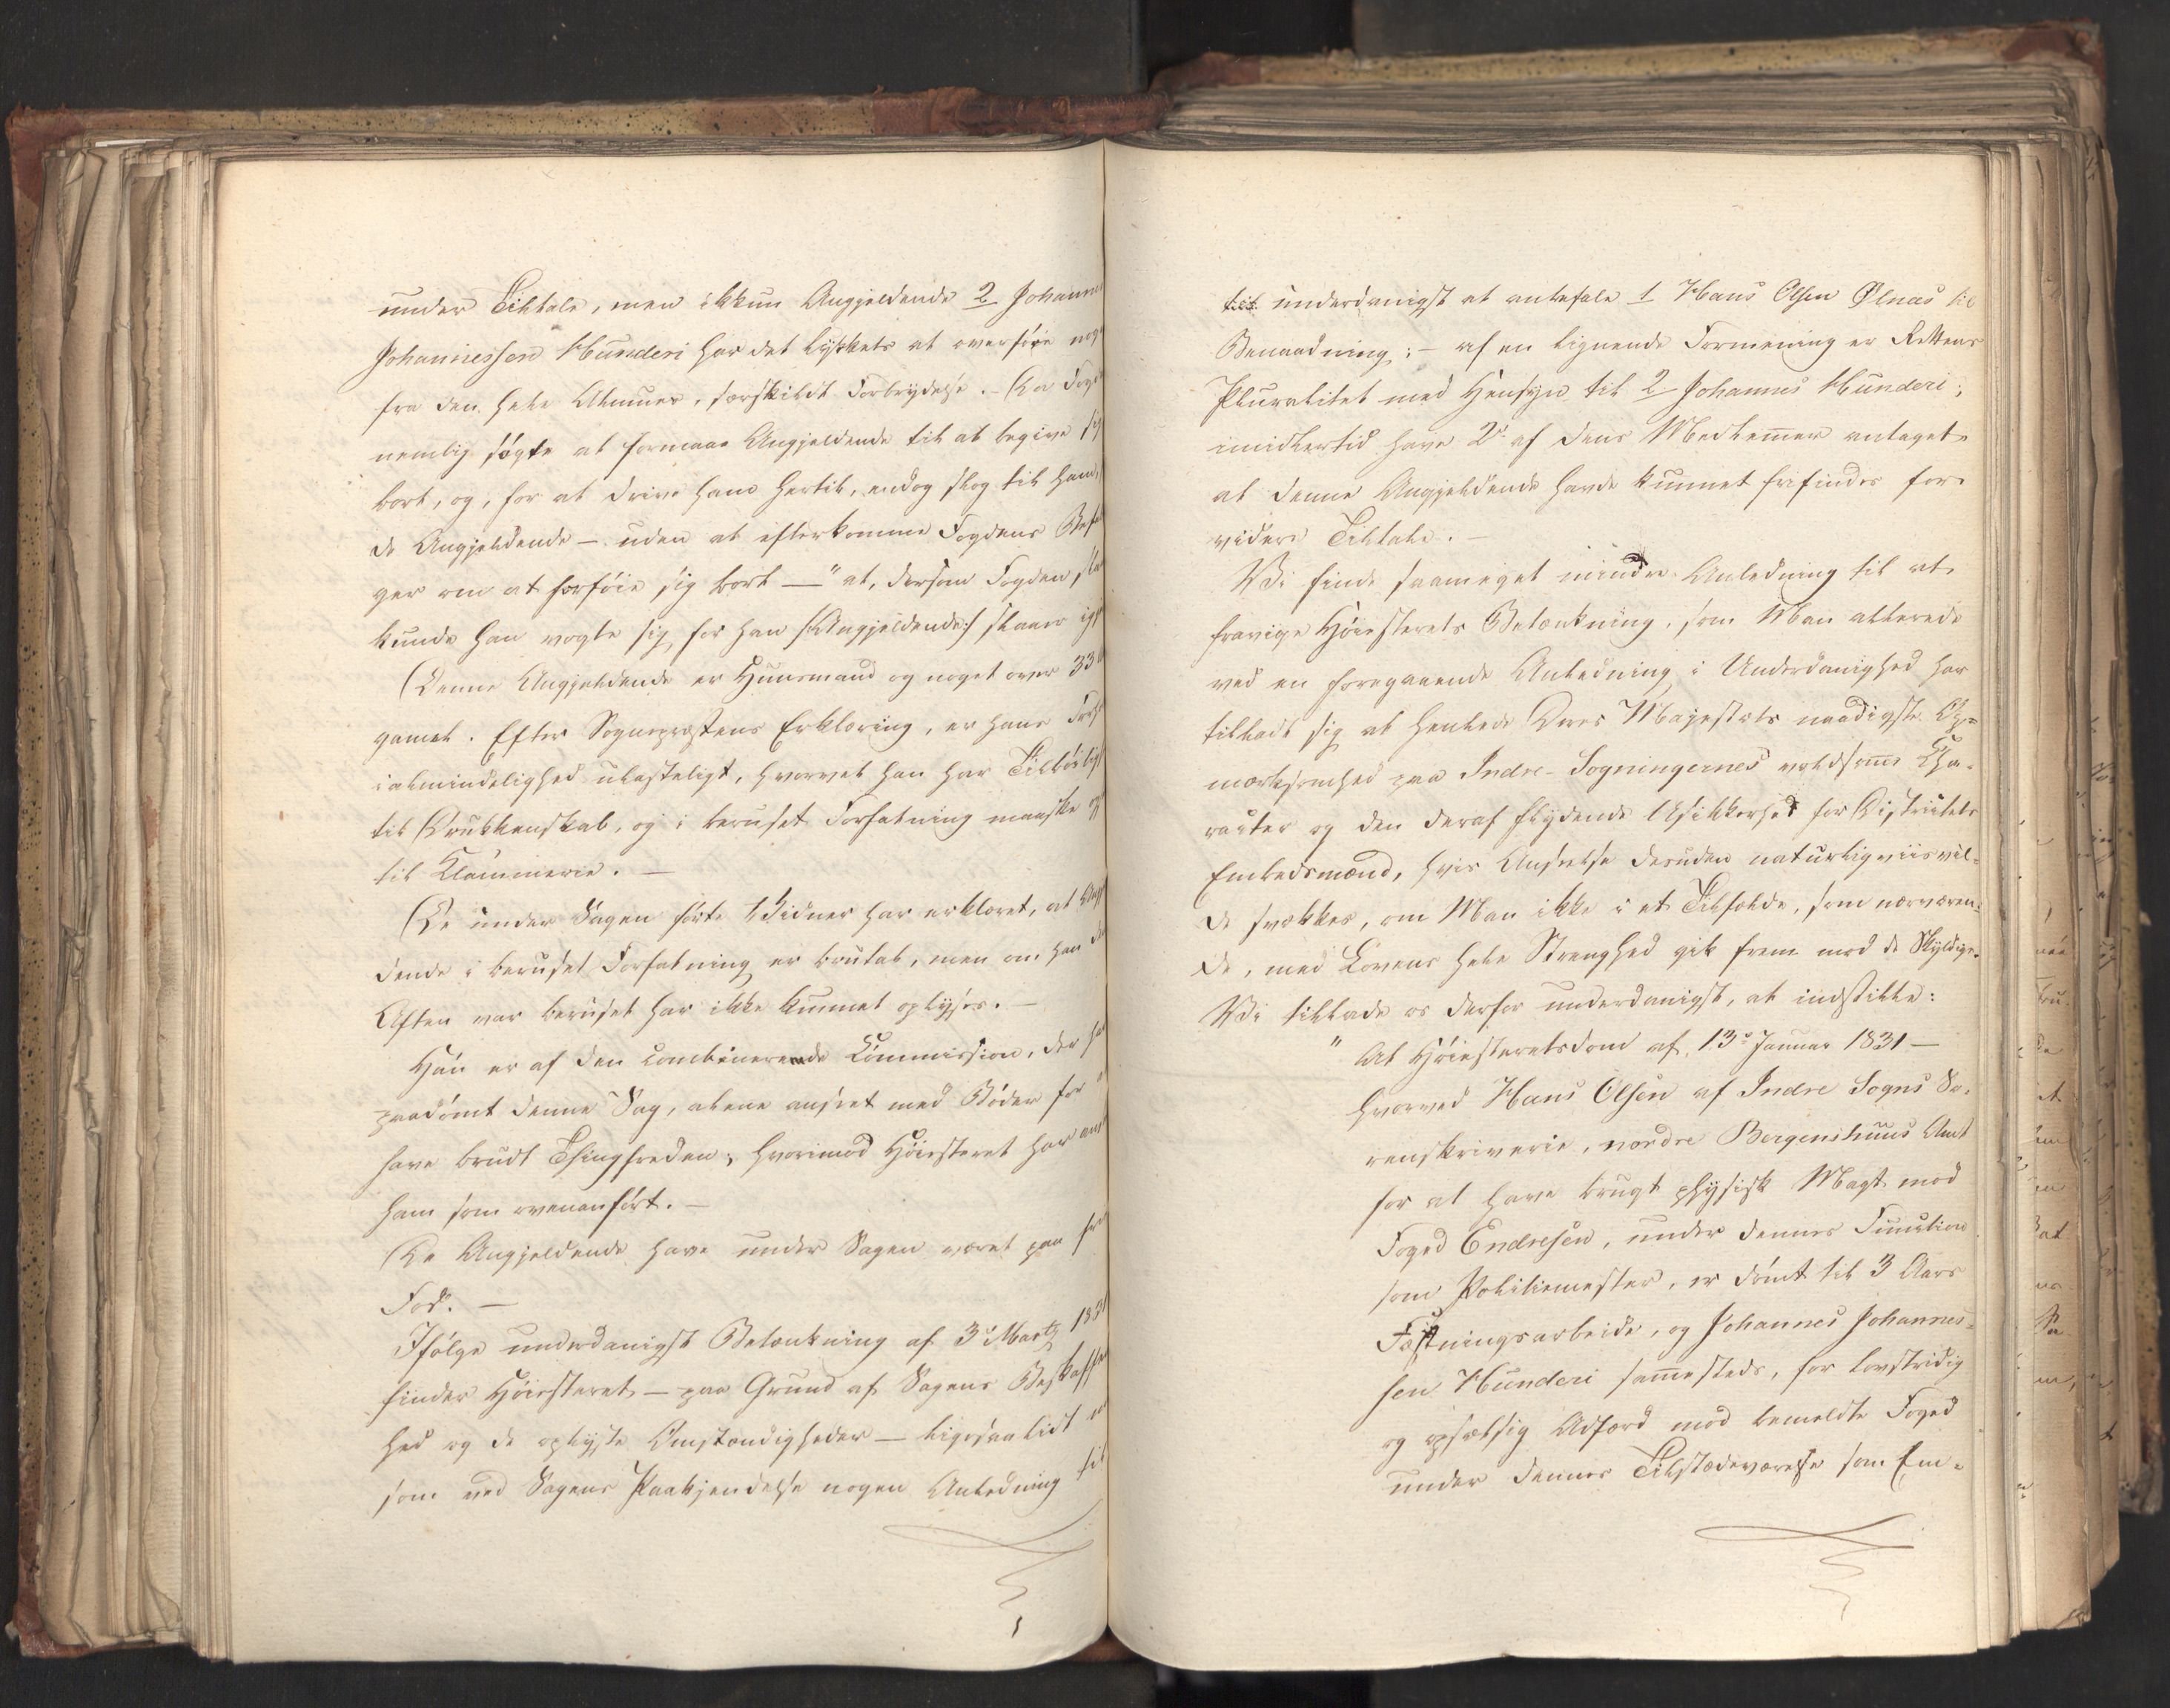 under Tiltale, men ikkun Angjeldende 2 Johannes
Johannessen Hunderi har det lykkets at overføre nog
fra den hele Almues, særskildt Forbrydelse. – Da Foge
nemlig søgte at formaae Angjeldende til at begive sig
bort, og, for at drive ham hertil, endog slog til ham,
de Angjeldende – uden at efterkomme Fogdens Befa
ger om at forføie sig bort – "at, dersom Fogden slo
kunde han vogte sig, for han /:Angjeldende:/ slaaer ig
Denne Angjeldende er Huusmand og noget over 33
gamel. Efter Sognepræstens Erklæring, er hans Forho
i almindelighed ulasteligt, hvorvel han har Tilbøielig
til Drukkenskab, og i beruset Forfatning maaske og
til Klammerie. –
De under Sagen førte Vidner har erklæret, at Angj
dende i beruset Forfatning er brutal, men om han de
Aften var beruset har ikke kunnet oplyses. –
Han er af den combinerende Commission, der ha
paadømt denne Sag, alene anseet med Bøder for
have brudt Thingfreden, hvorimod Høiesteret har ans
ham som ovenanført. –
De Angjeldende have under Sagen været paa fri
Fod. –
Ifølge underdanigst Betænkning af 3die Martz 1831
finder Høiesteret – paa Grund af Sagens Beskaffen
hed og de oplyste Omstændigheder – ligesaalidt
som ved Sagens Paakjendelse nogen Anledning til
til underdanigst at anbefale 1 Hans Olsen Ølnæs til
Benaadning; – af en lignende Formening er Rettens
Pluralitet med Hensyn til 2 Johannes Hunderi;
imidlertid have 2de af dens Medlemmer antaget
at denne Angjeldende havde kunnet frifindes for
videre Tiltale. –
Vi finde saameget mindre Anledning til at
fravige Høiesterets Betænkning, som Man allerede
ved en foregaaende Anledning i Underdanighed har
tilladt sig at henlede Deres Majestæts naadigste Op=
mærksomhed paa Indre-Sogningernes voldsomme Cha=
racter og den deraf flydende Usikkerhed for Districtets
Embedsmænd, hvis Anseelse desuden naturligviis vil=
de svækkes, om Man ikke i et Tilfælde, som nærværen=
de, med Lovens hele Strenghed gik frem mod de Skyldige.
Vi tillade os derfor underdanigst, at indstille:
"At Høiesteretsdom af 13de Januar 1831 –
hvorved Hans Olsen af Indre Sogns So=
renskriverie, nordre Bergenshuus Amt
for at have brugt physisk Magt mod
Foged Endresen, under dennes Function
som Politiemester, er dømt til 3 Aars
Fæstningsarbeide, og Johannes Johannes=
sen Hunderi sammesteds, for lovstridig
og opsætsig Adfærd mod bemeldte Foged
under dennes Tilstædeværelse som Em=